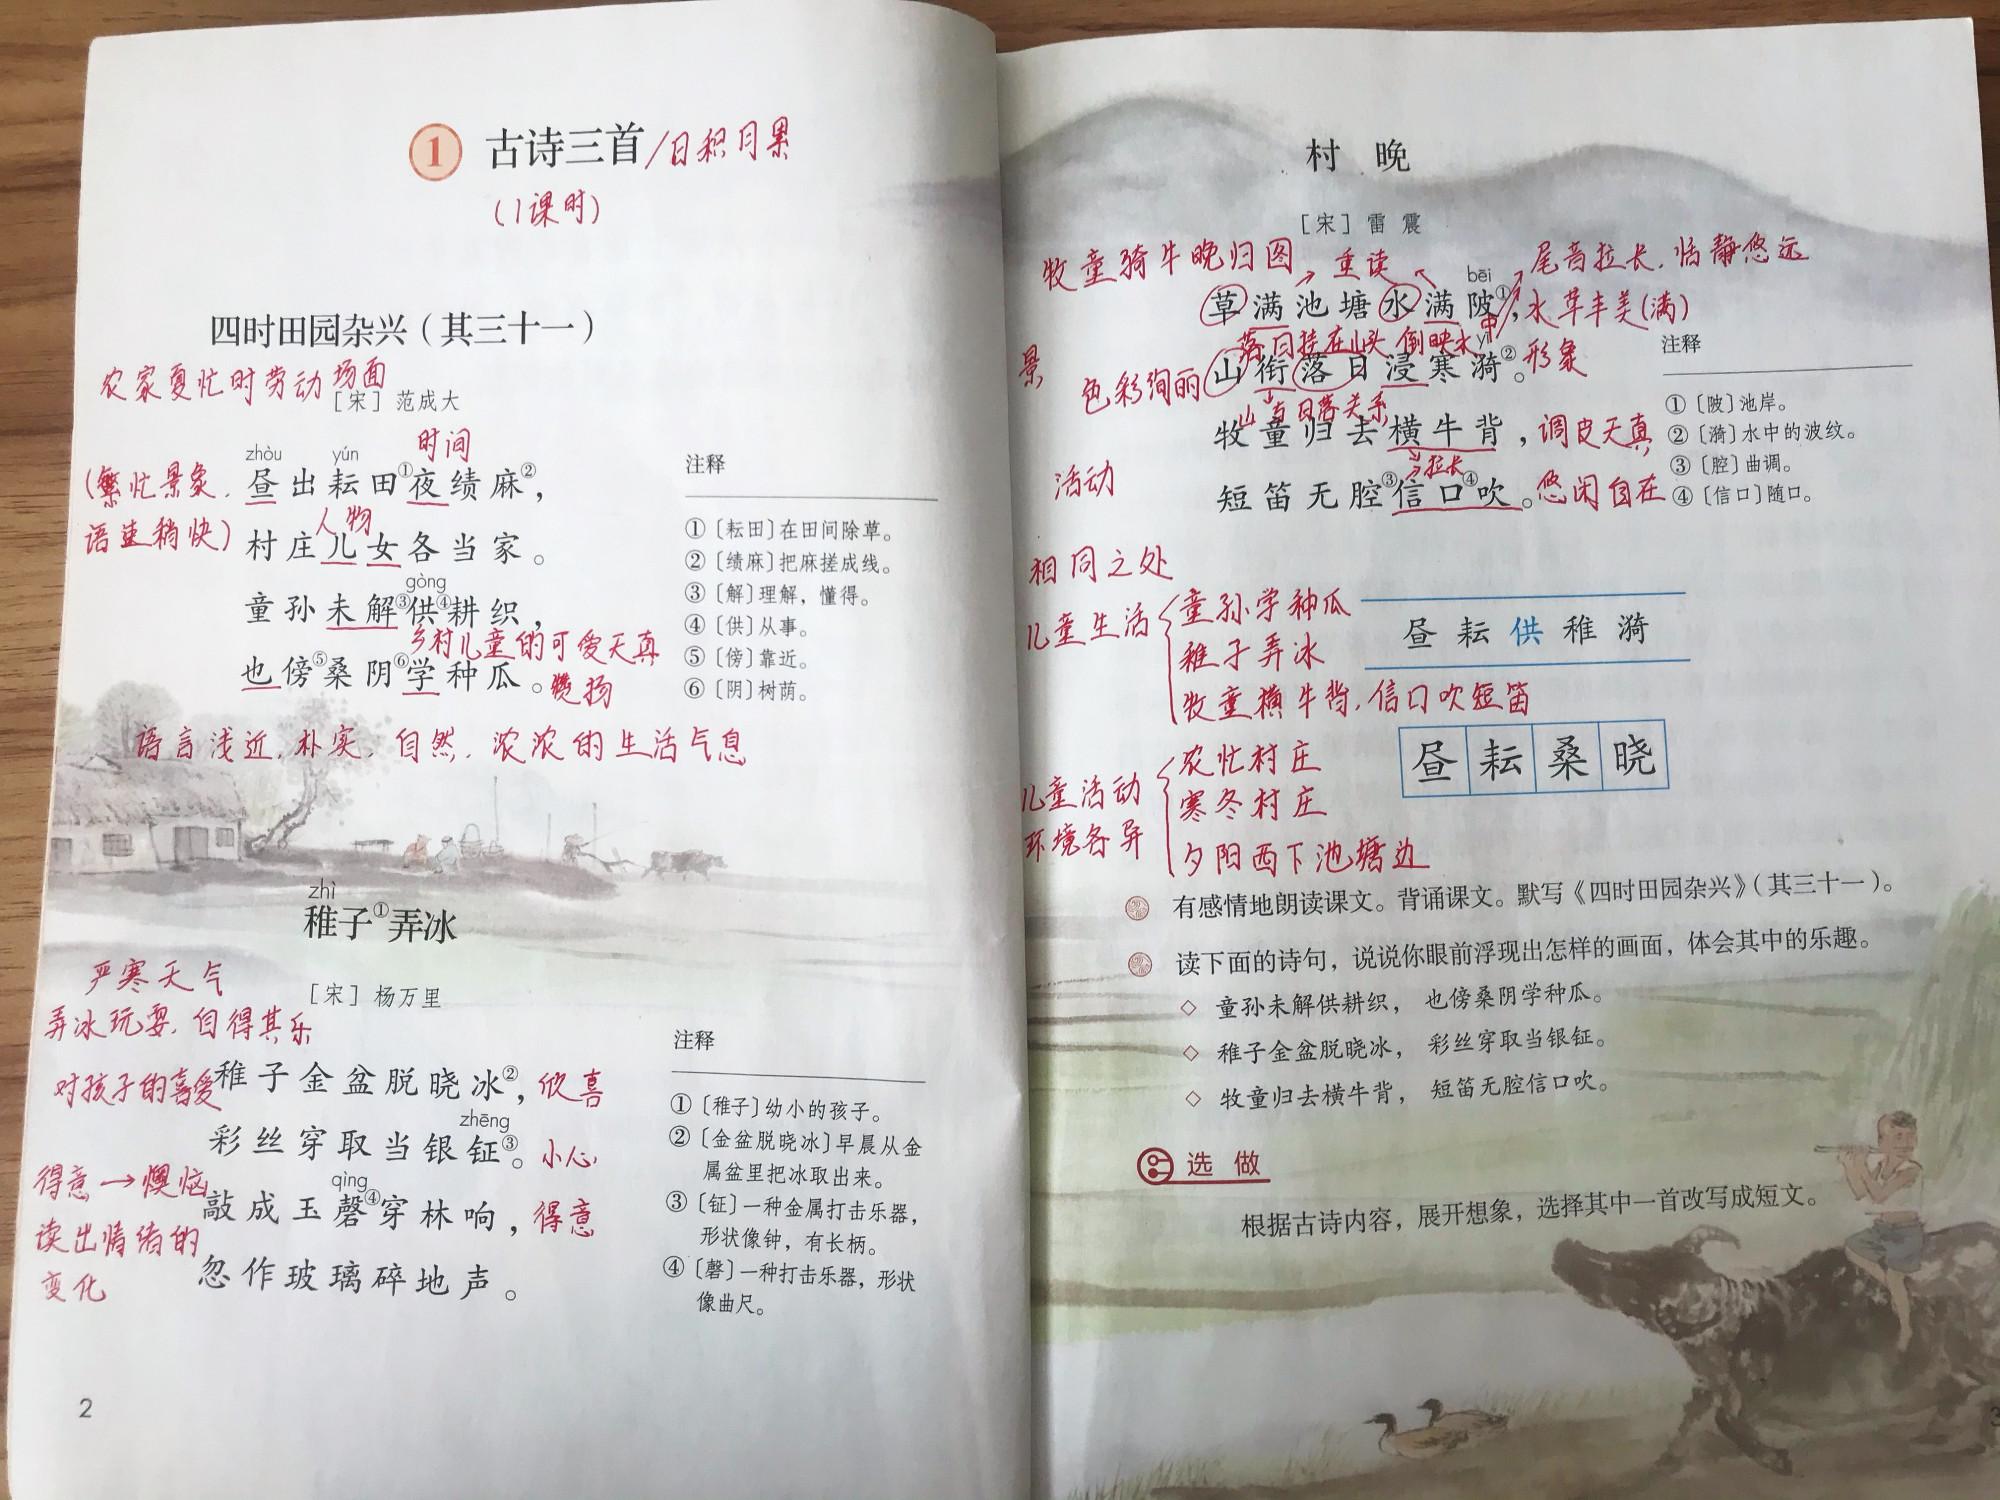 1 古诗三首/日积月累
(1课时)
四时田园杂兴(其三十一)
农家夏忙时劳动场面
[宋] 范成大
时间
zhòu yún
(繁忙景象,
昼出耘田①夜绩麻②,
语速稍快)
人物
村庄儿女各当家。
gòng
童孙未解③供④耕织,
乡村儿童的可爱天真
也傍⑤桑阴⑥学种瓜。赞扬
语言浅近,朴实,自然,浓浓的生活气息
注释
①〔耘田〕在田间除草。
②〔绩麻〕把麻搓成线。
③〔解〕理解,懂得。
④〔供〕从事。
⑤〔傍〕靠近。
⑥〔阴〕树荫。
zhì
稚子①弄冰
严寒天气
[宋] 杨万里
弄冰玩耍,自得其乐
对孩子的喜爱
稚子金盆脱晓冰②,欣喜
zhēng
彩丝穿取当银钲③。小心
得意→懊恼
qìng
敲成玉磬④穿林响,得意
读出情绪的
变化
忽作玻璃碎地声。
注释
①〔稚子〕幼小的孩子。
②〔金盆脱晓冰〕早晨从金
属盆里把冰取出来。
③〔钲〕一种金属打击乐器,
形状像钟,有长柄。
④〔磬〕一种打击乐器,形状
像曲尺。
2
村 晚
[宋] 雷 震
牧童骑牛晚归图
重读
尾音拉长,恬静悠远
bēi
草满池塘水满陂①,水草丰美(满)
落日挂在山头 倒映水中
yī
景
色彩绚丽
山衔落日浸寒漪②。形象
山与日落关系
牧童归去横牛背,调皮天真
拉长
活动
短笛无腔③信口④吹。悠闲自在
注释
①〔陂〕池岸。
②〔漪〕水中的波纹。
③〔腔〕曲调。
④〔信口〕随口。
相同之处
儿童生活
童孙学种瓜
稚子弄冰
牧童横牛背,信口吹短笛
昼 耘 供 稚 漪
昼 耘 桑 晓
儿童活动
环境各异
农忙村庄
寒冬村庄
夕阳西下池塘边
有感情地朗读课文。背诵课文。默写《四时田园杂兴》(其三十一)。
读下面的诗句,说说你眼前浮现出怎样的画面,体会其中的乐趣。
◇ 童孙未解供耕织, 也傍桑阴学种瓜。
◇ 稚子金盆脱晓冰, 彩丝穿取当银钲。
◇ 牧童归去横牛背, 短笛无腔信口吹。
选 做
根据古诗内容,展开想象,选择其中一首改写成短文。
3